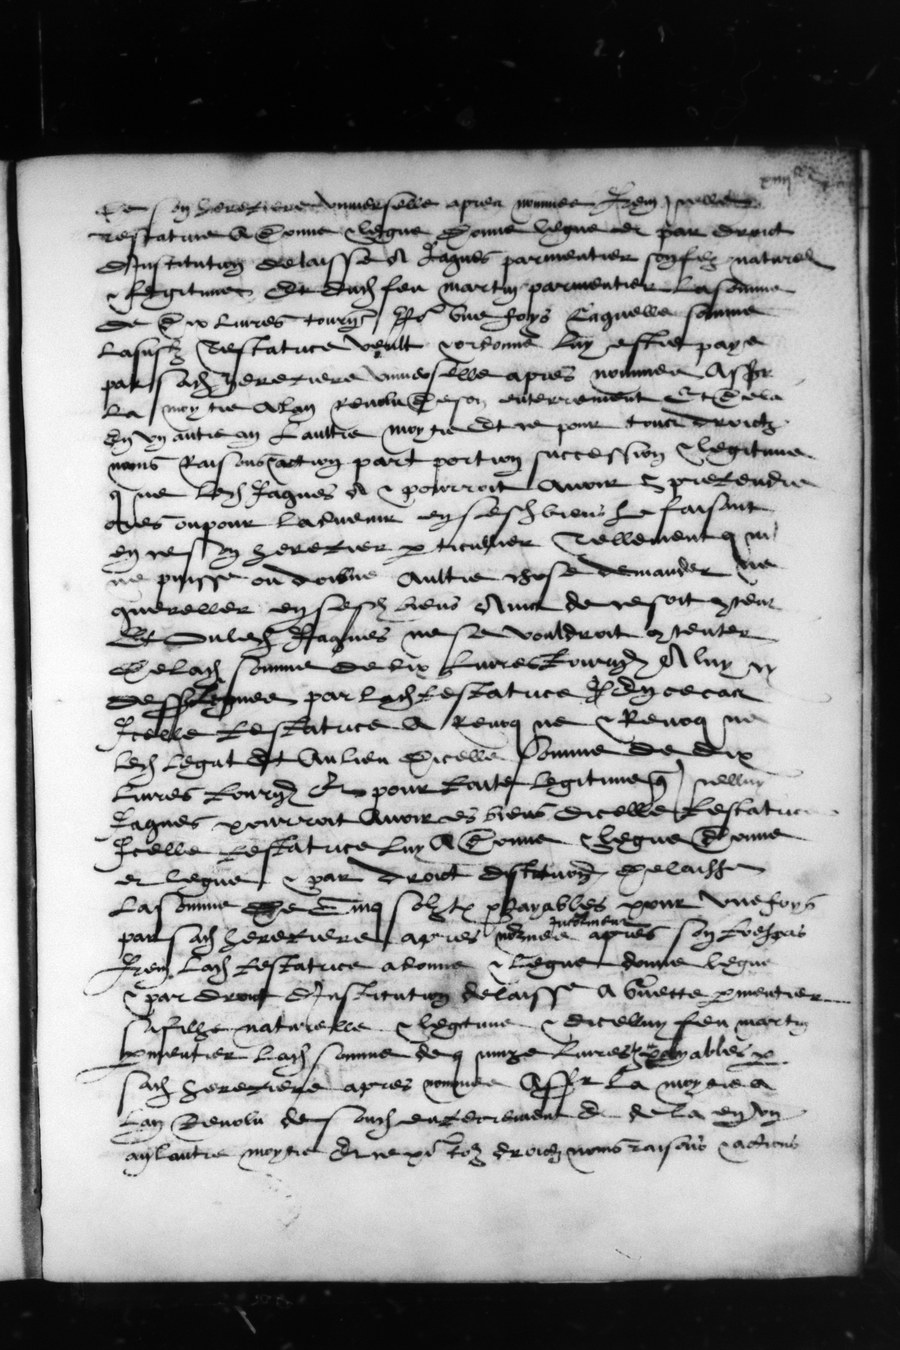 de son heretiere universelle apres nommee Item icelle
testatrice a donne & legue donne legue et par droit
dinstitution delaisse A Jaques parmentier son filz naturel
& legitime Et dud feu martin parmentier La somme
de dix livres tourn po² une foys Laquelle somme
lasusd testatrice veult & ordonne luy estre paye
par sad heretiere universelle apres nommee Assr
La moytie a lan Revolu de son enterrement Et de la
En un autre an Laultre moytie Et ce pour tous droictz
noms Raisons action part portion succession & legitime
que led Jaques A & pourroit avoir & pretendre
ores ou pour ladvenir en sesd biens Le faisant
en ce son heretier particullier Tellement q ni
ne puisse ou doibve aultre chose demander ne
quereller en sesd biens Ains de ce soit 9tent
Et ou led Jaques ne se vouldroit 9tenter
De lad somme de dix Livres tourn A luy cy
dess leguee par lad testatrice
Icelle testatrice A Revoq ue & Revoq ue
led legat Et Au lieu dicelle somme de dix
Livres tourn Et pour toute legitime q icelluy
Jaques pourroit Avoir es biens dicelle testatrice
Icelle testatrice luy A donne & legue donne
et legue & par droict distitution delaisse
La somme de Cinq solz tz payables pour une foys
par sad heretiere apres nommee apres son trespas
Item Lad testatrice a donne & legue donne legue
& par droict dInstitution delaisse A parmentier
sa fille naturelle & legitime & dicelluy feu martin
parmentier Lad somme de quinze livres tz payables p
sad heretiere apres nommee Assr La moytie a
Lan Revolu de sond enterrement & de la en un
an lautre moytie Et ce po² tos droictz noms raisons & actions